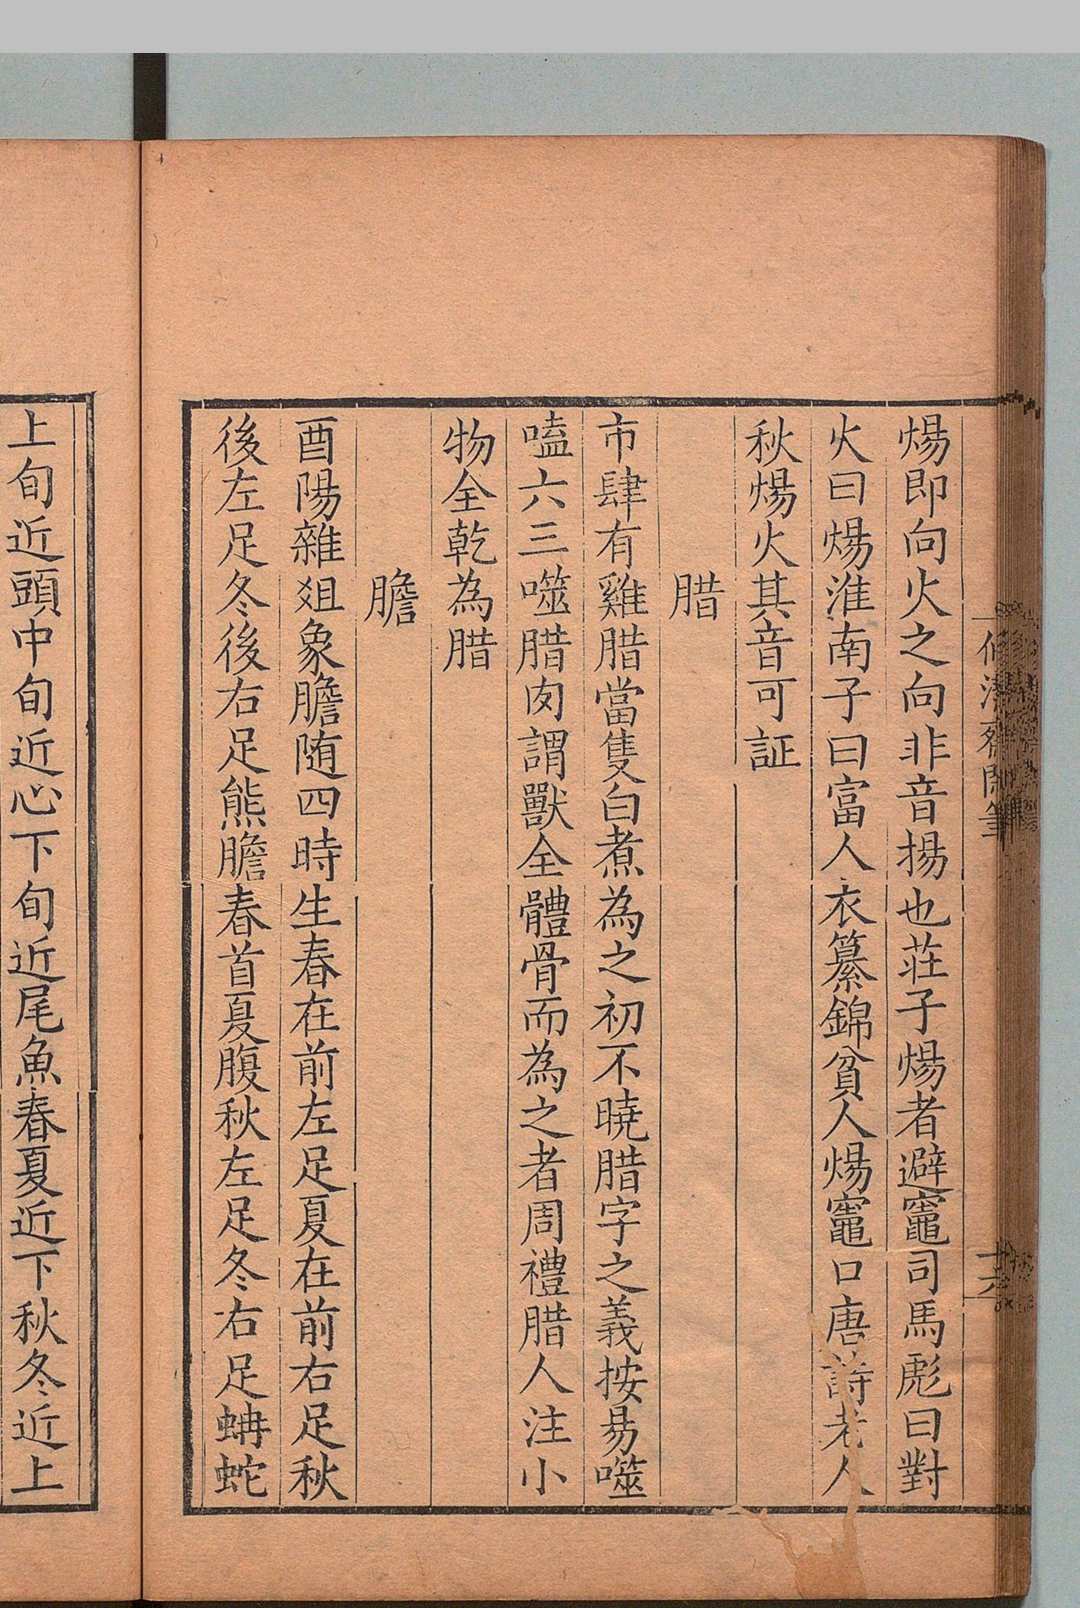 煬即向火之向非音揚也莊子煬者避竈司馬彪曰對
火曰煬淮南子曰富人衣纂錦貧人煬竈口唐詩老人
秋煬火其音可証
腊
市肆有雞腊當隻白煮為之初不曉腊字之義按易噬
嗑六三噬腊肉謂獸全體骨而為之者周禮腊人注小
物全乾為腊
膽
酉陽雜俎象膽随四時生春在前左足夏在前右足秋
後左足冬後右足熊膽春首夏腹秋左足冬右足蚺蛇
上旬近頭中旬近心下旬近尾魚春夏近下秋冬近上